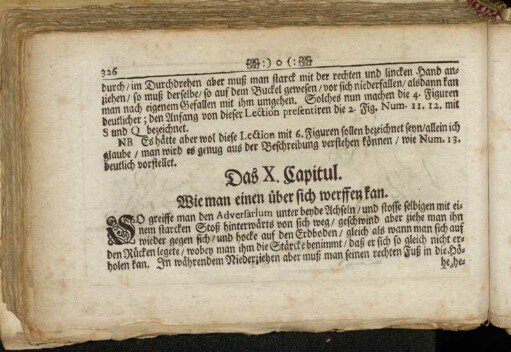 326 :) o (:
durch/ im Durchdrehen aber muß man starck mit der rechten und lincken Hand an-
ziehen/ so muß derselbe/ so auf dem Buckel gewesen/ vor sich niederfallen/ alsdann kan
man nach eigenem Gefallen mit ihm umgehen. Solches nun machen die 4. Figuren
deutlicher; den Anfang von dieser Lection presentiren die 2. Fig. Num. 11. 12. mit
S und Q bezeichnet.
NB Es hätte aber wol diese Lection mit 6. Figuren sollen bezeichnet seyn/ allein ich
glaube/ man wird es genug aus der Beschreibung verstehen können/ wie Num. 13.
deutlich vorstellet.
Das X. Capitul.
Wie man einen über sich werffen kan.
SO greiffe man den Adversarium unter beyde Achseln/ und stosse selbigen mit ei-
nem starcken Stoß hinterwärts von sich weg/ geschwind aber ziehe man ihn
wieder gegen sich/ und hocke auf den Erdboden/ gleich als wann man sich auf
den Rücken legete/ wobey man ihm die Stärcke benimmt/ daß er sich so gleich nicht er-
holen kan. In währendem Niederziehen aber muß man seinen rechten Fuß in die Hö-
he/he-